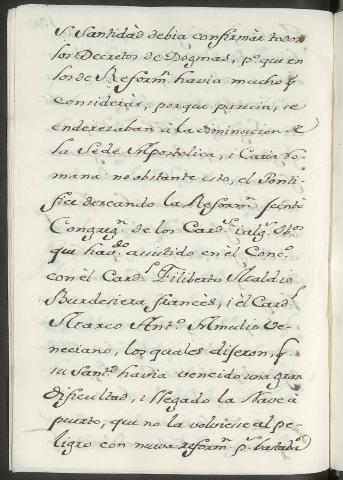 S. Santidàd debia confirmàr todos
los Decretos de Dogmas, p.º que en
los de Reform.n havia mucho q̃
consideràr, porque parecia, se
enderezaban à la diminucion de
la Sede Apostolica, i Curia Ro-
mana: no obstante esto, el Ponti-
fice deseando la Reform.n juntò
Congreg.n de los Card.s i alg.s Ob.os
qui hav.do assistido en el Conc.o
con el Card.l Filiberto Naldio
Burdesiera francès, i el Card.l
Marco Ant.o Amulio Ve-
neciano, los quales dijeron, q̃
su Sant.d havia vencido una gran
dificultad, i llegado la Nave à
puerto, que no la volviesse al pe-
ligro con nueva reform.n p.s bastaba